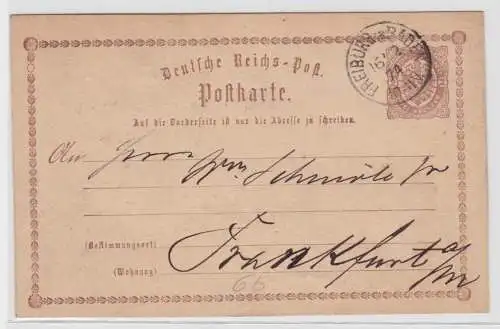 FREIBURG in BADEN
16
74
Deutsche Reichs-Post.
Postkarte.
Auf die Vorderseite ist nur die Adresse zu schreiben.
An Herrn Wm Schmöle jr
(Bestimmungsort)
Frankfurt a/m
(Wohnung)
66